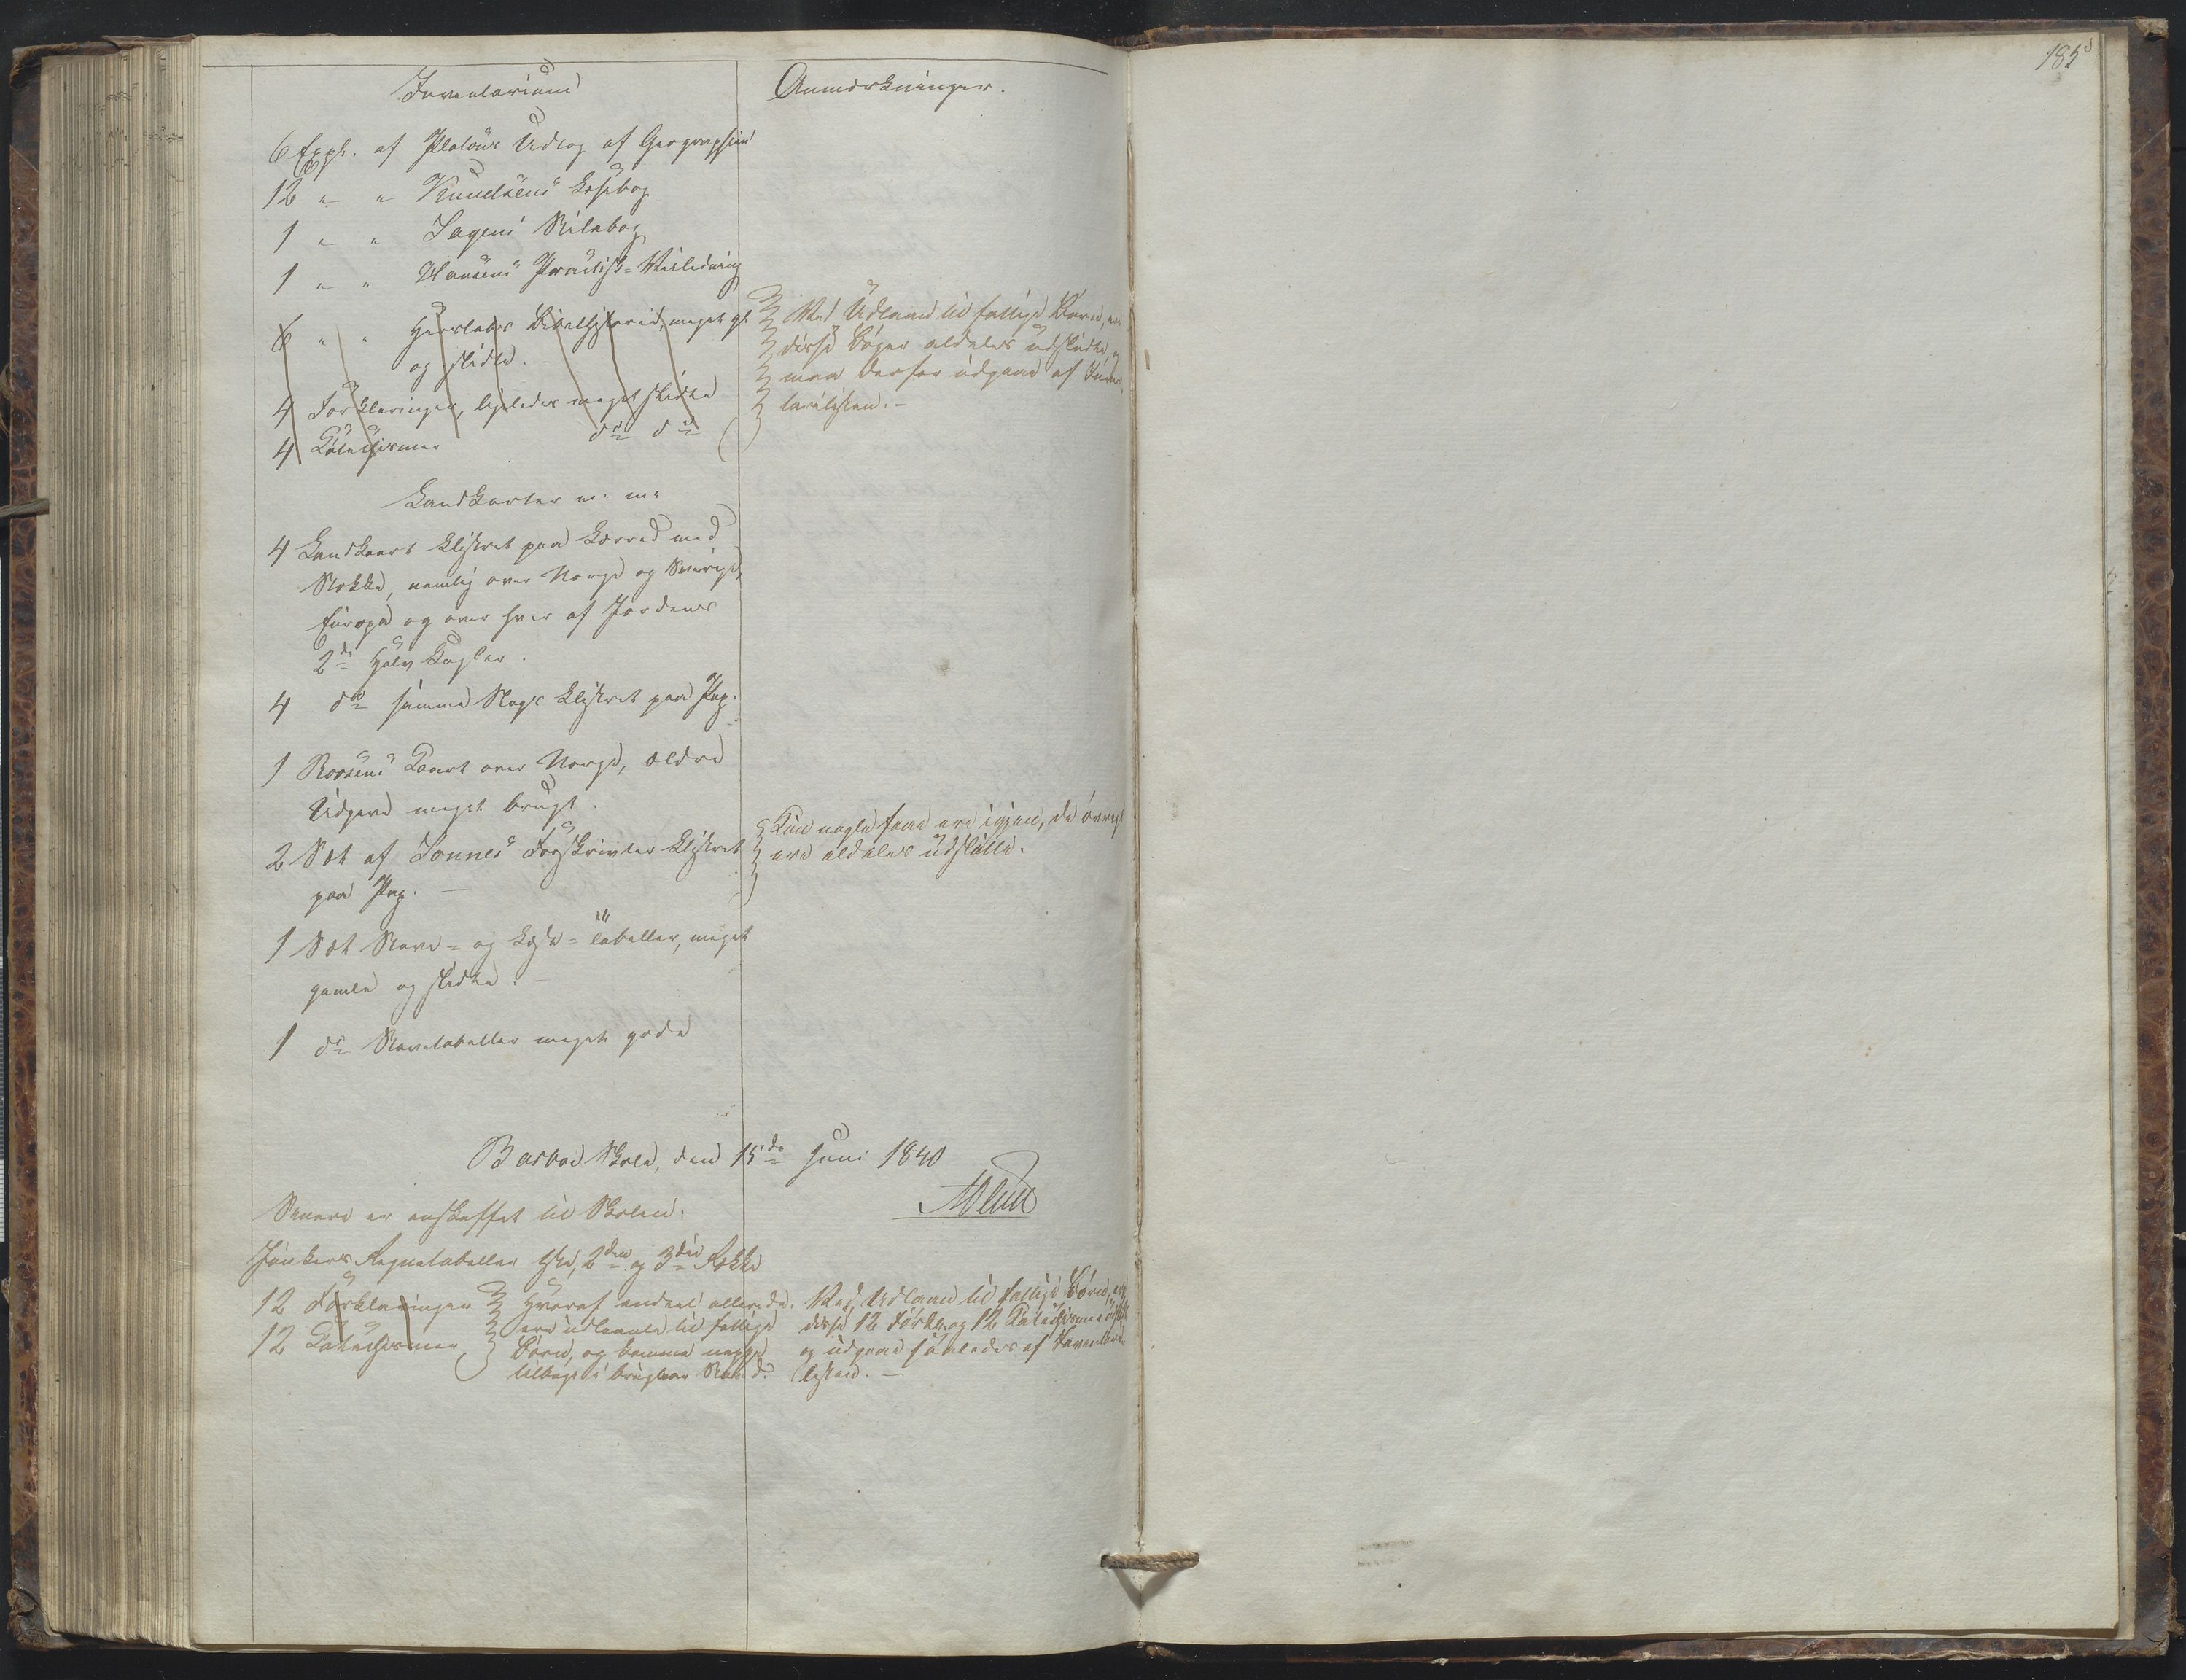 185
Inventarium
Anmærkninger.
6 Expl. af Platous Udtog af Geographien
12 " " Knudsens Læsebog
1 " " Jagers Stilebog
1 " " Hansens Practisk-Veiledning
6 " " Herslebs Bibelhistorie, meget gl.
og slidte. -
4 Forklaringer, ligeledes meget slidte
4 Katechismer do do
Ved Udlaan til fattige Børn, ere
disse Bøger aldeles udslidte, og
maa derfor udgaae af Inven-
tarielisten. -
Landkarter m. m.
4 Landkaart klistret paa Lærred med
Stokke, nemlig over Norge og Sverige,
Europa og over hver af Jordens
2de Halv Kugler.
4 do samme Slags klistret paa Pap.
1 Roosens Kaart over Norge, ældre
Udgave meget brugt.
2 Sæt af Tonnes Forskrivter klistret
paa Pap. -
Kun nogle faae ere igjen, de øvrige
ere aldeles udslidte.
1 Sæt Stave- og Læse-tabeller, meget
gamle og slidte. -
1 do Stavetabeller meget gode
Barboe Skole, den 15de Juni 1840
Senere er anskaffet til Skolen:
Junkers Regnetabeller 1ste, 2den og 3die Række
12 Forklaringer
12 Katechismer
Hvoraf endeel allerede
ere udlaante til fattige
Børn, og komme neppe
tilbage i brugbar Stand.
Ved Udlaan til fattige Børn, ere
disse 12 Forkl. og 12 Katechismer udslidte
og udgaae saaledes af Inventarie
listen. -